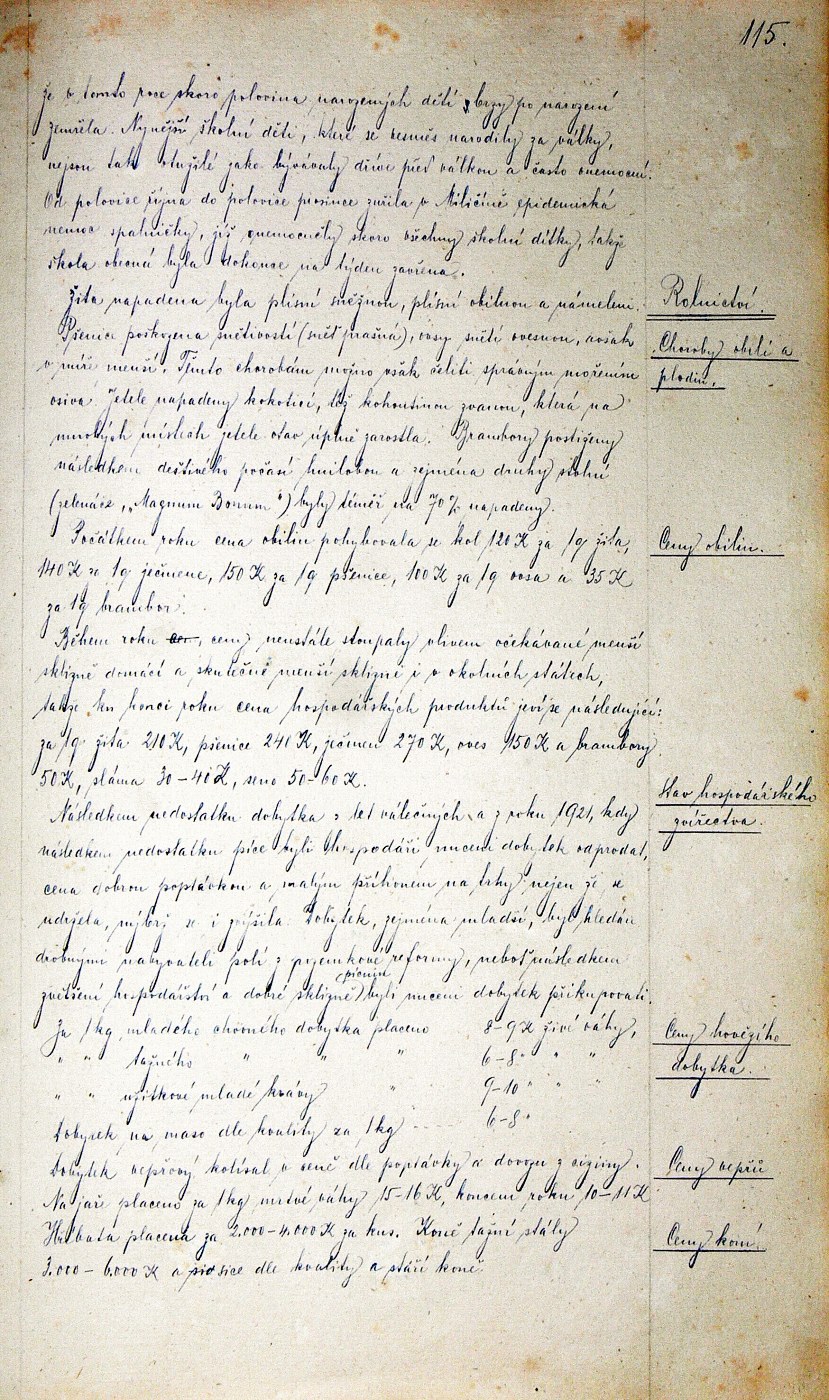 115.
že v tomto roce skoro polovina narozených dětí brzy po narození
zemřela. Nynější školní děti, které se vesměs narodily za války,
nejsou tak otužilé jako bývávaly dříve před válkou a často onemocní.
Od polovice října do polovice prosince zuřila v Miličíně epidemická
nemoc spalničky, jíž onemocněly skoro všechny školní dítky, takže
škola obecná byla dokonce na týden zavřena.
Rolnictví.
Žita napadena byla plísní sněžnou, plísní obilnou a námelem.
Choroby obilí a
plodin.
Pšenice poškozena snětivostí (sněť prašná), ovsy snětí ovesnou, avšak
v míře menší. Těmto chorobám možno však čeliti správným mořením
osiva. Jetele napadeny kokoticí, též kohoutinou zvanou, která na
mnohých místech jetele otav úplně zarostla. Brambory postiženy
následkem deštivého počasí hnilobou a zejména druhy stolní
(zelenáče, „Magnum Bonum") byly téměř na 70% napadeny.
Ceny obilin.
Počátkem roku cena obilin pohybovala se kol 120 K za 1q žita,
140 K za 1q ječmene, 150 K za 1q pšenice, 100 K za 1q ovsa a 35 K
za 1q brambor.
Během roku cen, ceny neustále stoupaly vlivem očekávané menší
sklizně domácí a skutečně menší sklizni i v okolních státech,
takže ku konci roku cena hospodářských produktů jeví se následující:
za 1q žita 210 K, pšenice 240 K, ječmen 270 K, oves 150 K a brambory
50 K, sláma 30-40 K, seno 50-60 K.
Stav hospodářského
zvířectva.
Následkem nedostatku dobytka z let válečných a z roku 1921, kdy
následkem nedostatku píce byli hospodáři nuceni dobytek odprodat,
cena dobrou poptávkou a malým příhonem na trhy nejen že se
udržela, nýbrž se i zvýšila. Dobytek, zejména mladší, byl hledán
drobnými nabyvateli polí z pozemkové reformy, neboť následkem
zvětšení hospodářství a dobré sklizně pícnin byli nuceni dobytek přikupovati.
Ceny hovězího
dobytka.
Za 1 kg mladého chovného dobytka placeno 8-9 K živé váhy,
" " tažného " " " 6-8 " " "
" " užitkové mladé krávy " 9-10 " " "
Dobytek na maso dle kvality za 1 kg 6-8 "
Ceny vepřů
Dobytek vepřový kolísal v ceně dle poptávky a dovozu z ciziny.
Na jaře placeno za 1 kg mrtvé váhy 15-16 K, koncem roku 10-11 K
Ceny koní.
Hříbata placena za 2.000-4.000 K za kus. Koně tažní stály
3.000-6.000 K a více dle kvality a stáří koně.